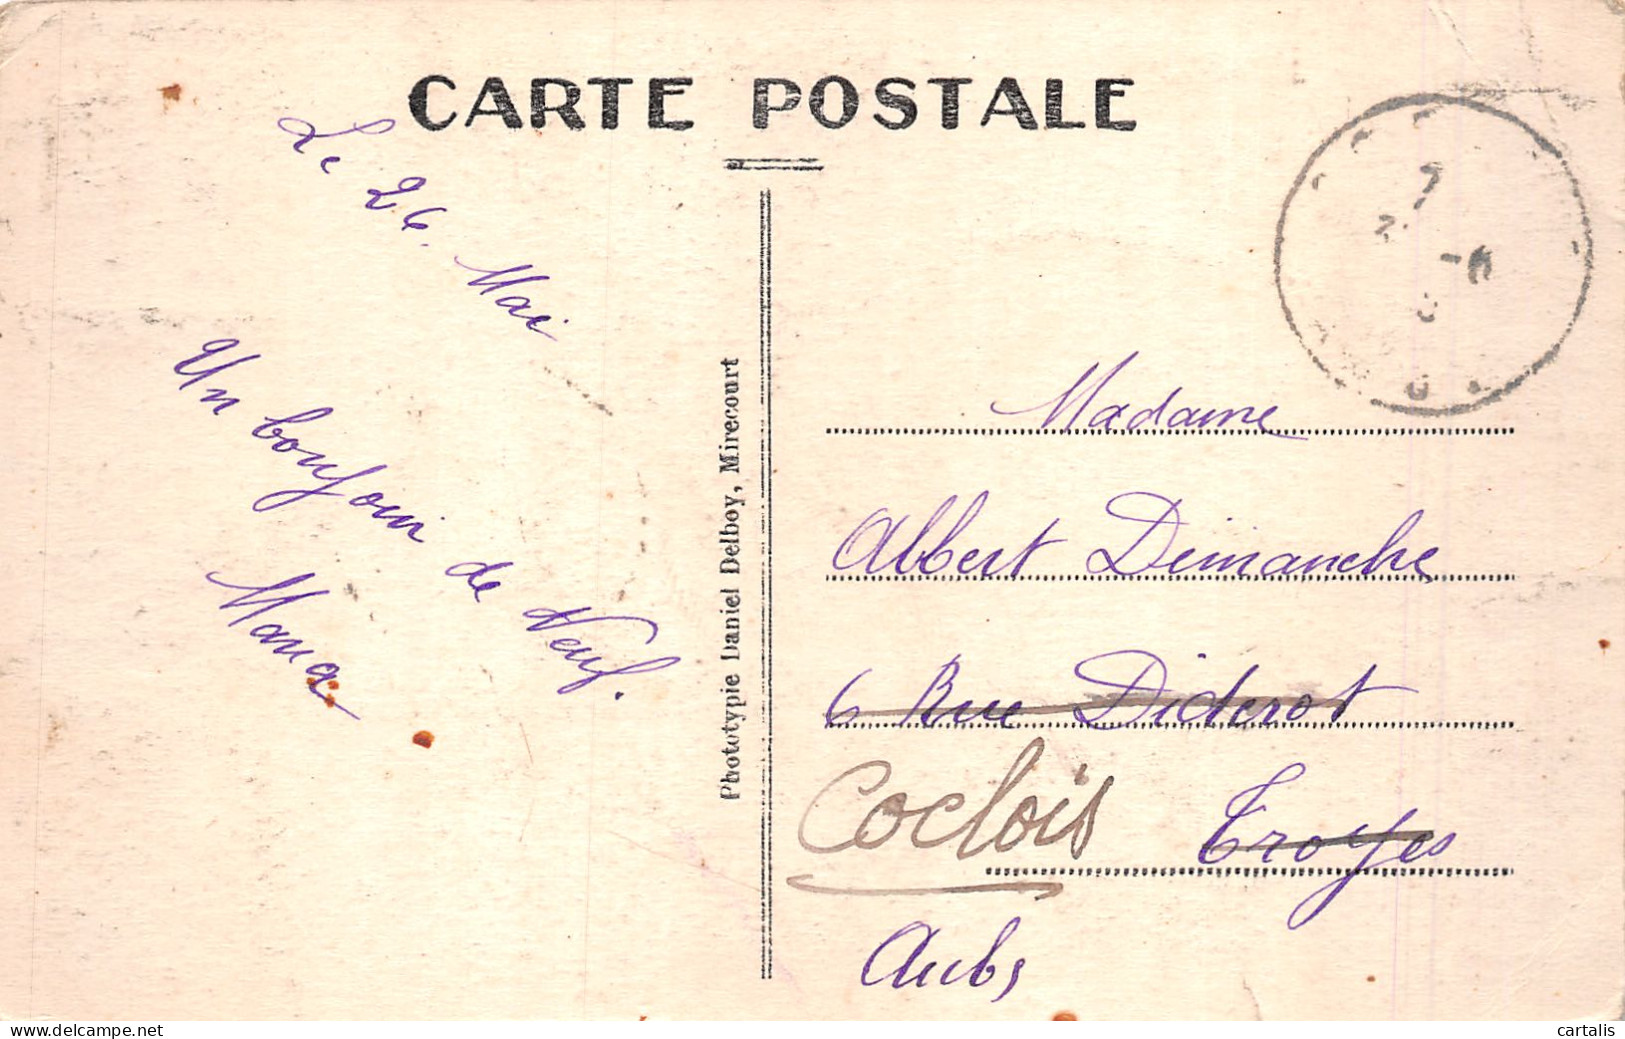 CARTE POSTALE
Le 26. Mai
Un bonjour de Neuf.
Phototypie Daniel Delboy, Mirecourt
Madame
Albert Dimanche
6 Rue Diderot
Coclois
Troyes
Aube
cartalis
www.delcampe.net